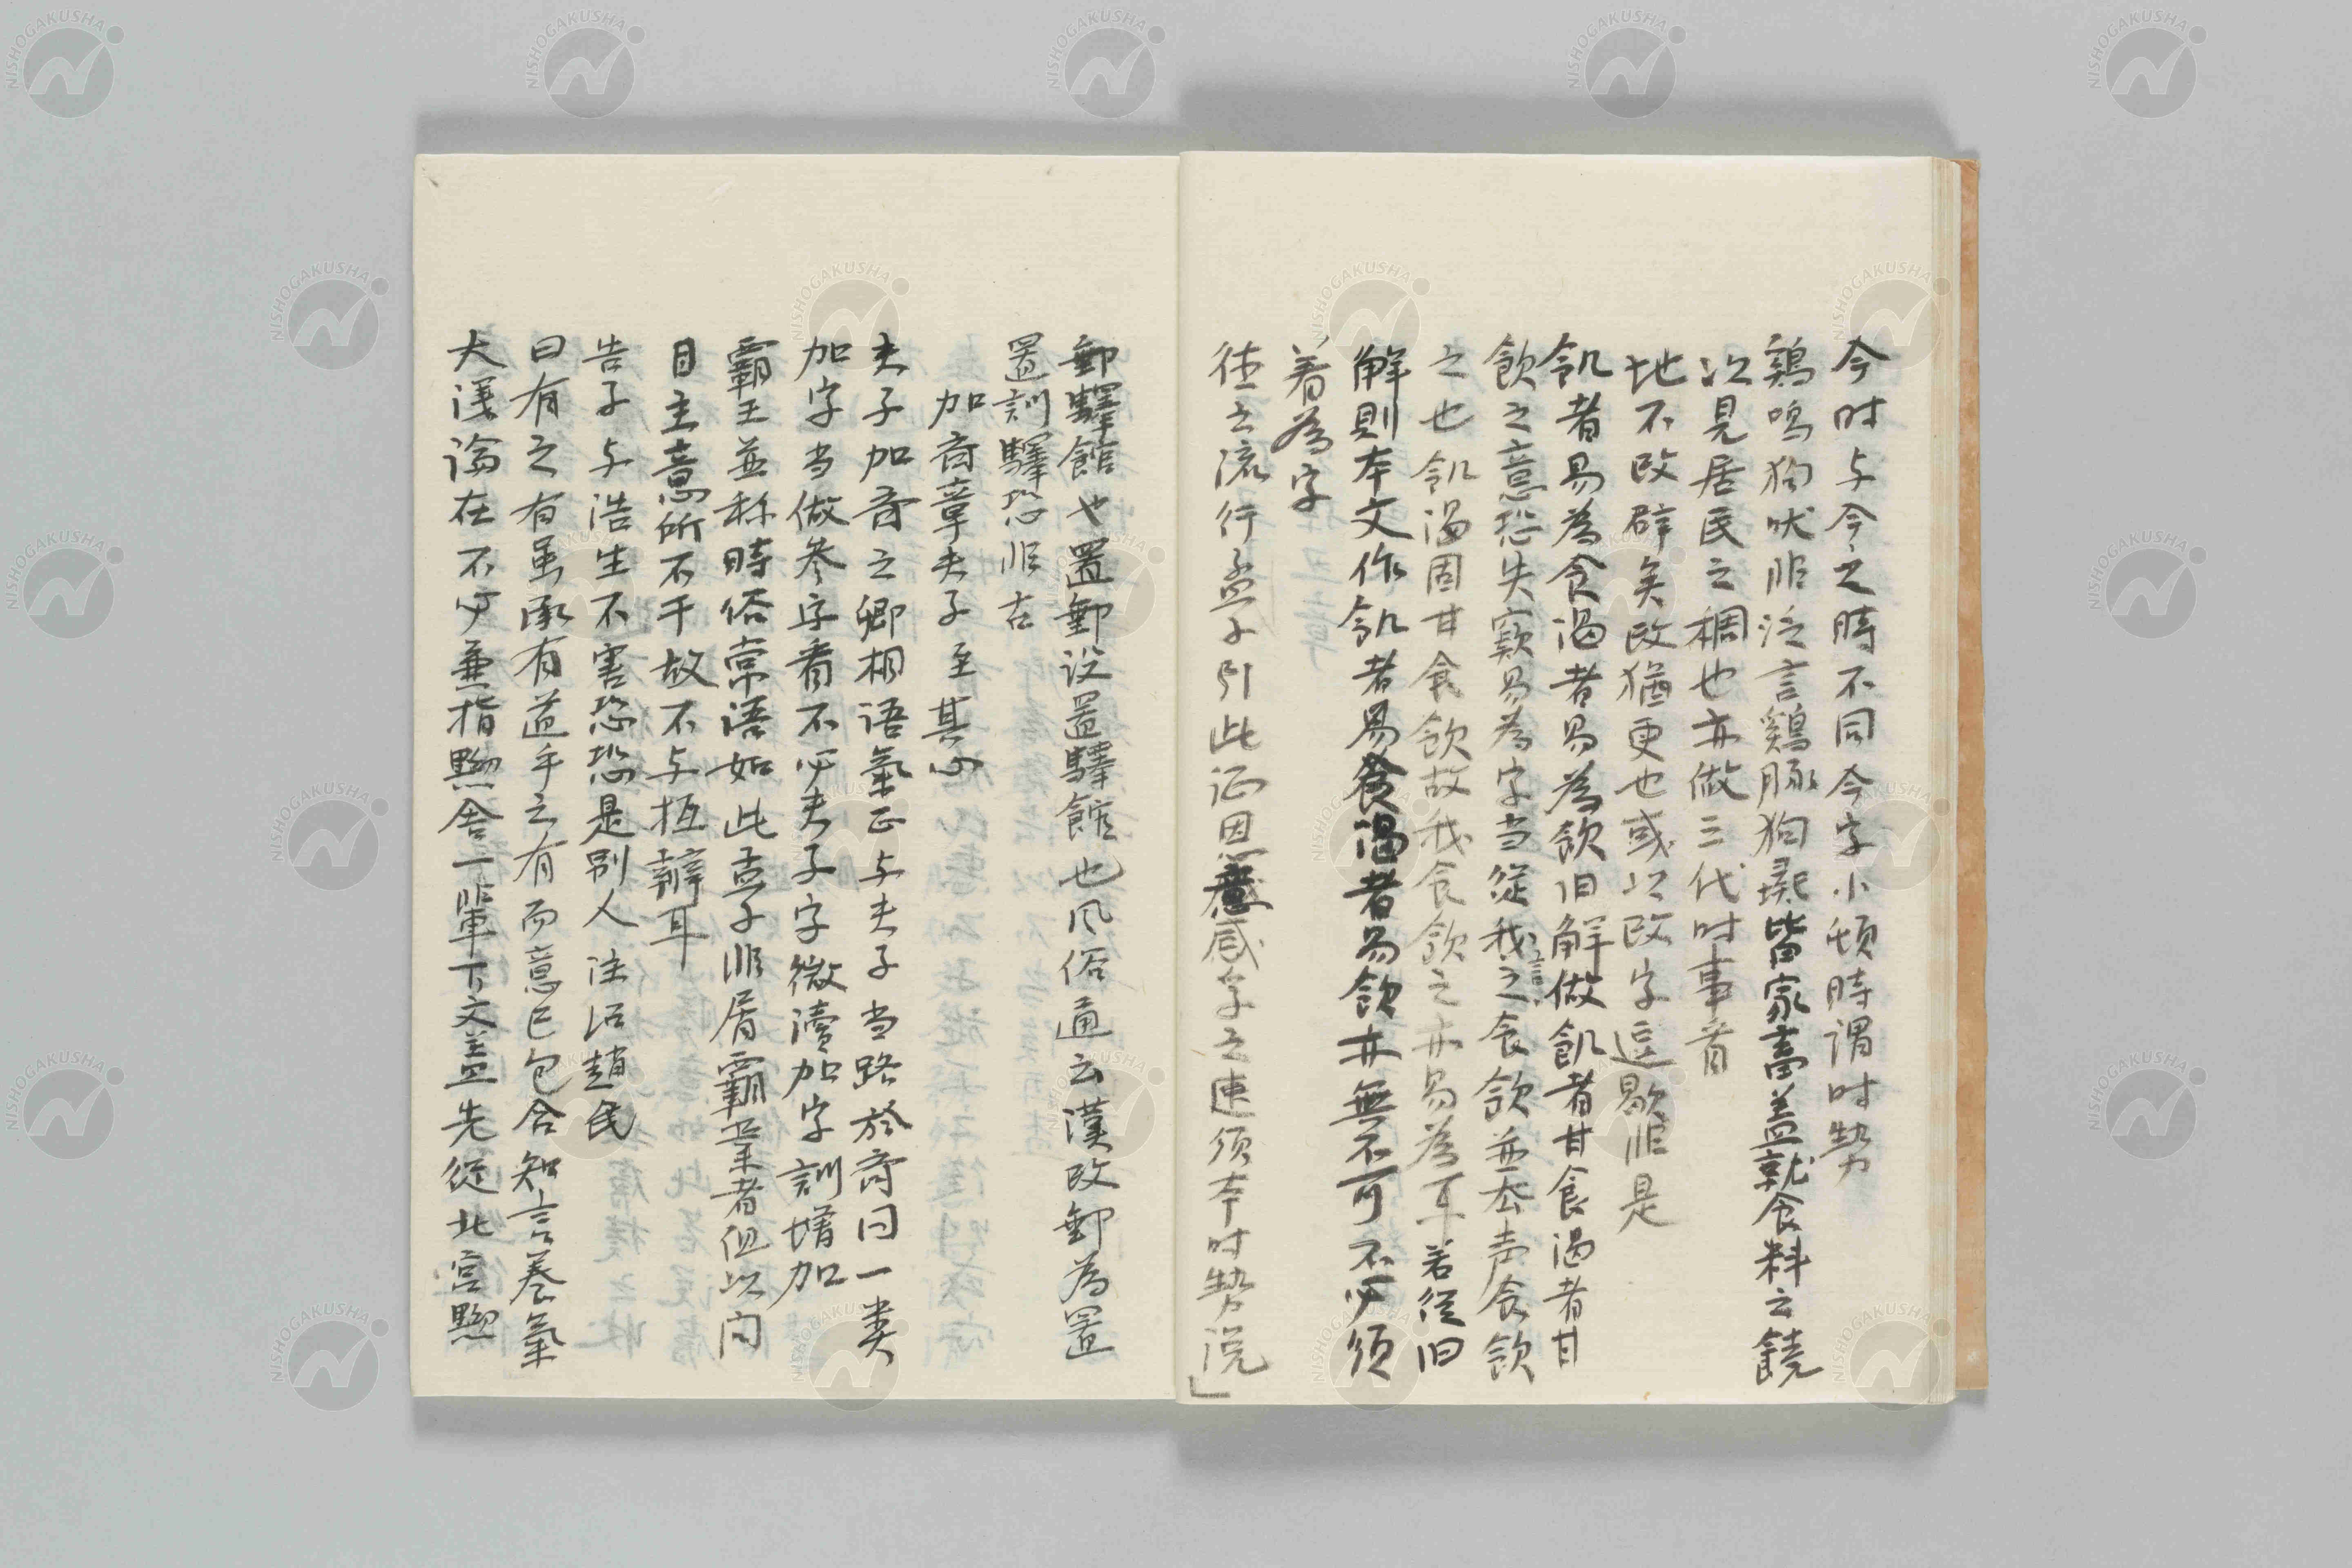 今时与今之時不同今字小頓時謂时勢
鶏鳴狗吠非泛言鷄豚狗彘皆家畜盖就食料云饒
次見居民之稠也亦做三代时事看
地不改辟矣改猶更也或以改字逗歇非是
飢者易為食渴者易為飲旧解做飢者甘食渴者甘
飲之意恐失竅易為字当従我言之食飲並去声食飲
之也飢渴固甘食飲故我食飲之亦易為耳若従旧
解則本文作飢者易食渴者易飲亦無不可不必須
着為字
徳之流行孟子引此证因感字之速須本时勢説」
郵驛館也置郵設置驛館也风俗通云漢改郵為置
置訓驛恐非古
加斉章夫子至其心
夫子加斉之卿相語氣正与夫子当路於斉同一类
加字当做参字看不必夫子字微瀆加字訓増加
霸王並称時俗常语如此孟子非屑霸業者但以问
目主意所不干故不与抵辯耳
告子与浩生不害恐是別人注沿趙氏
曰有之有虽承有道乎之有而意已包含知言养氣
大漢論在不必兼指黝舎一輩下文盖先従北宮黝
NISHOGAKUSHA